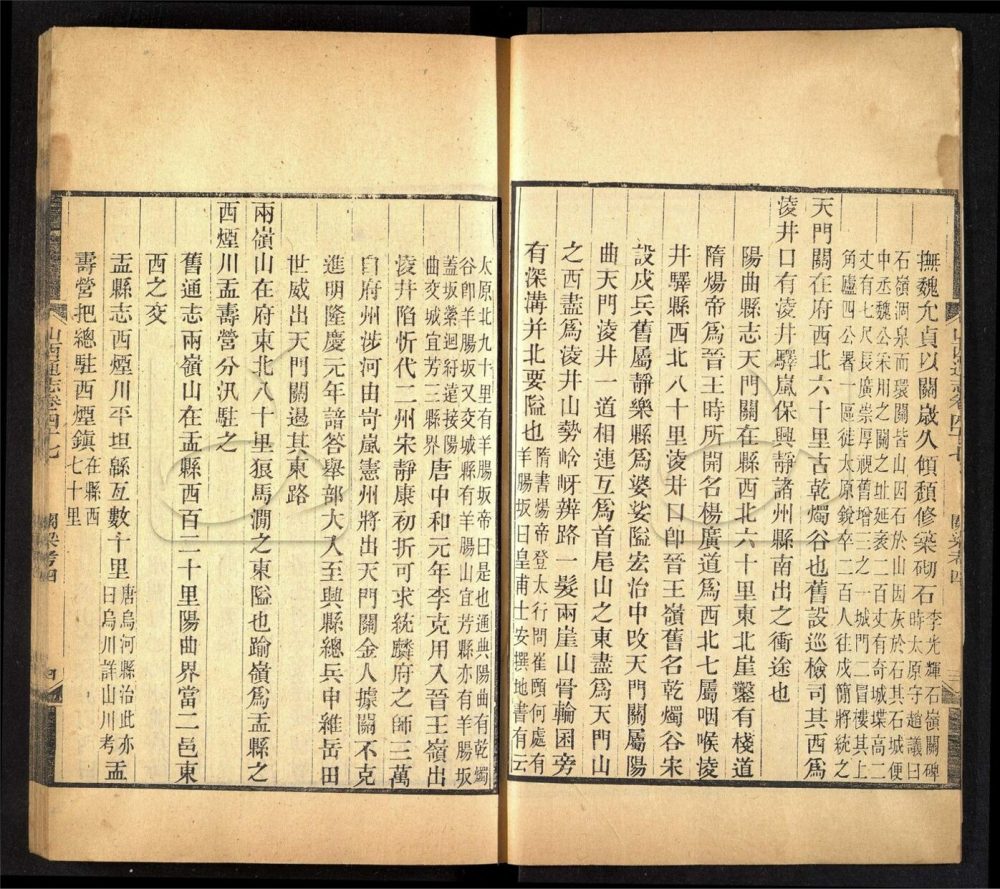 撫魏允貞以關嵗久傾頽修築砌石
李光輝石嶺關碑
時太原守趙議曰
石嶺澗泉而環關皆山因石於山因灰於石其石城便
中丞魏公采用之關之址延袤二百丈有奇城堞高二
丈有七尺長廣崇厚視舊增三之一城門二冒樓其上
角廬四公署一區徒太原銳卒二百人往戍簡將統之
天門關在府西北六十里古乾燭谷也舊設巡檢司其西爲
淩井口有淩井驛嵐保興靜諸州縣南出之衝途也
陽曲縣志天門關在縣西北六十里東北崖鑿有棧道
隋煬帝爲晉王時所開名楊廣道爲西北七屬咽喉淩
井驛縣西北八十里淩井口卽晉王嶺舊名乾燭谷宋
設戍兵舊屬靜樂縣爲婆娑隘宏治中攺天門關屬陽
曲天門淩井一道相連互爲首尾山之東盡爲天門山
之西盡爲淩井山勢崄岈辨路一髮兩崖山骨輪囷旁
有深溝并北要隘也
隋書煬帝登太行問崔頤何處有
羊腸坂曰皇甫士安撰地書有云
太原北九十里有羊腸坂帝曰是也通典陽曲有乾燭
谷卽羊腸坂又交城縣有羊腸山宜芳縣亦有羊腸坂
蓋坂縈迴紆遠接陽
曲交城宜芳三縣界
唐中和元年李克用入晉王嶺出
淩井陷忻代二州宋靖康初折可求統麟府之師三萬
自府州涉河由岢嵐憲州將出天門關金人據關不克
進明隆慶元年諳答舉部大入至興縣總兵申維岳田
世威出天門關遏其東路
兩嶺山在府東北八十里狼馬澗之東隘也踰嶺爲盂縣之
西煙川盂壽營分汛駐之
舊通志兩嶺山在盂縣西百二十里陽曲界當二邑東
西之交
盂縣志西煙川平坦緜亙數十里
唐烏河縣治此亦
曰烏川詳山川考
盂
壽營把總駐西煙鎮
在縣西
七十里
山西通志卷四十七
關梁考四
四